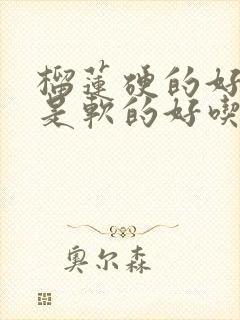 榴莲硬的好
是軟的好喫
奥尔森